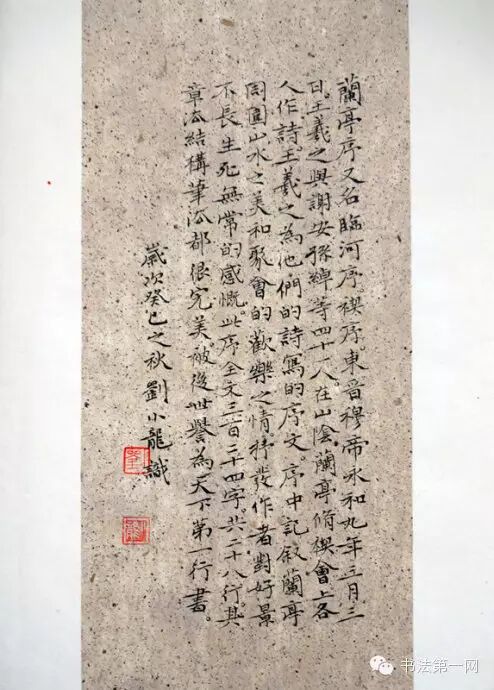 蘭亭序又名臨河序。禊序。東晉穆帝永和九年三月三
日。王羲之與謝安孫綽等四十一人。在山陰蘭亭脩禊會上各
人作詩。王羲之為他們的詩寫的序文。序中記叙蘭亭
周圍山水之美和聚會的歡樂之情抒發作者對好景
不長。生死無常的感慨。此序全文三百二十四字。共二十八行。其
章法結構筆法都很完美。被後世譽為天下第一行書。
歲次癸巳之秋劉小龍識
书法第一网